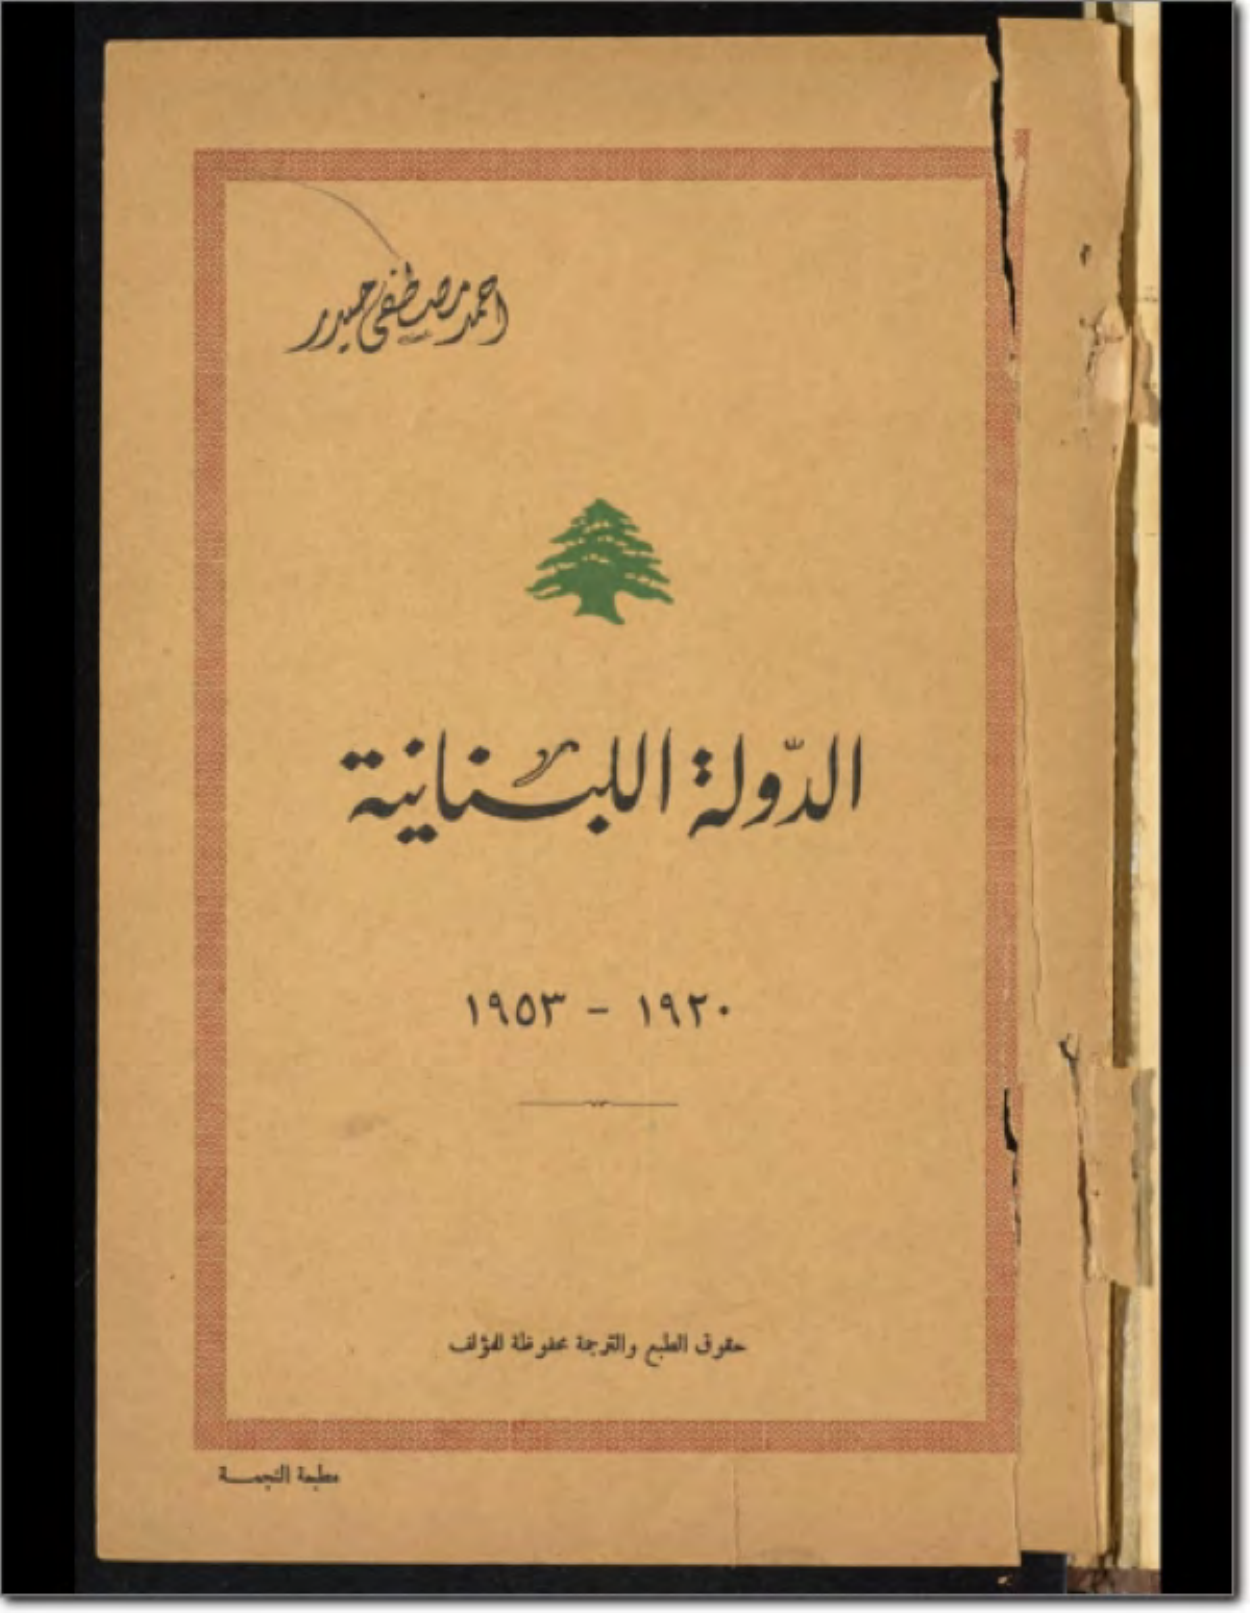 احمد مصطفى حيدر
الدّولة اللبنانية
١٩٢٠ - ١٩٥٣
حقوق الطبع والترجمة محفوظة للمؤلف
مطبعة النجمة